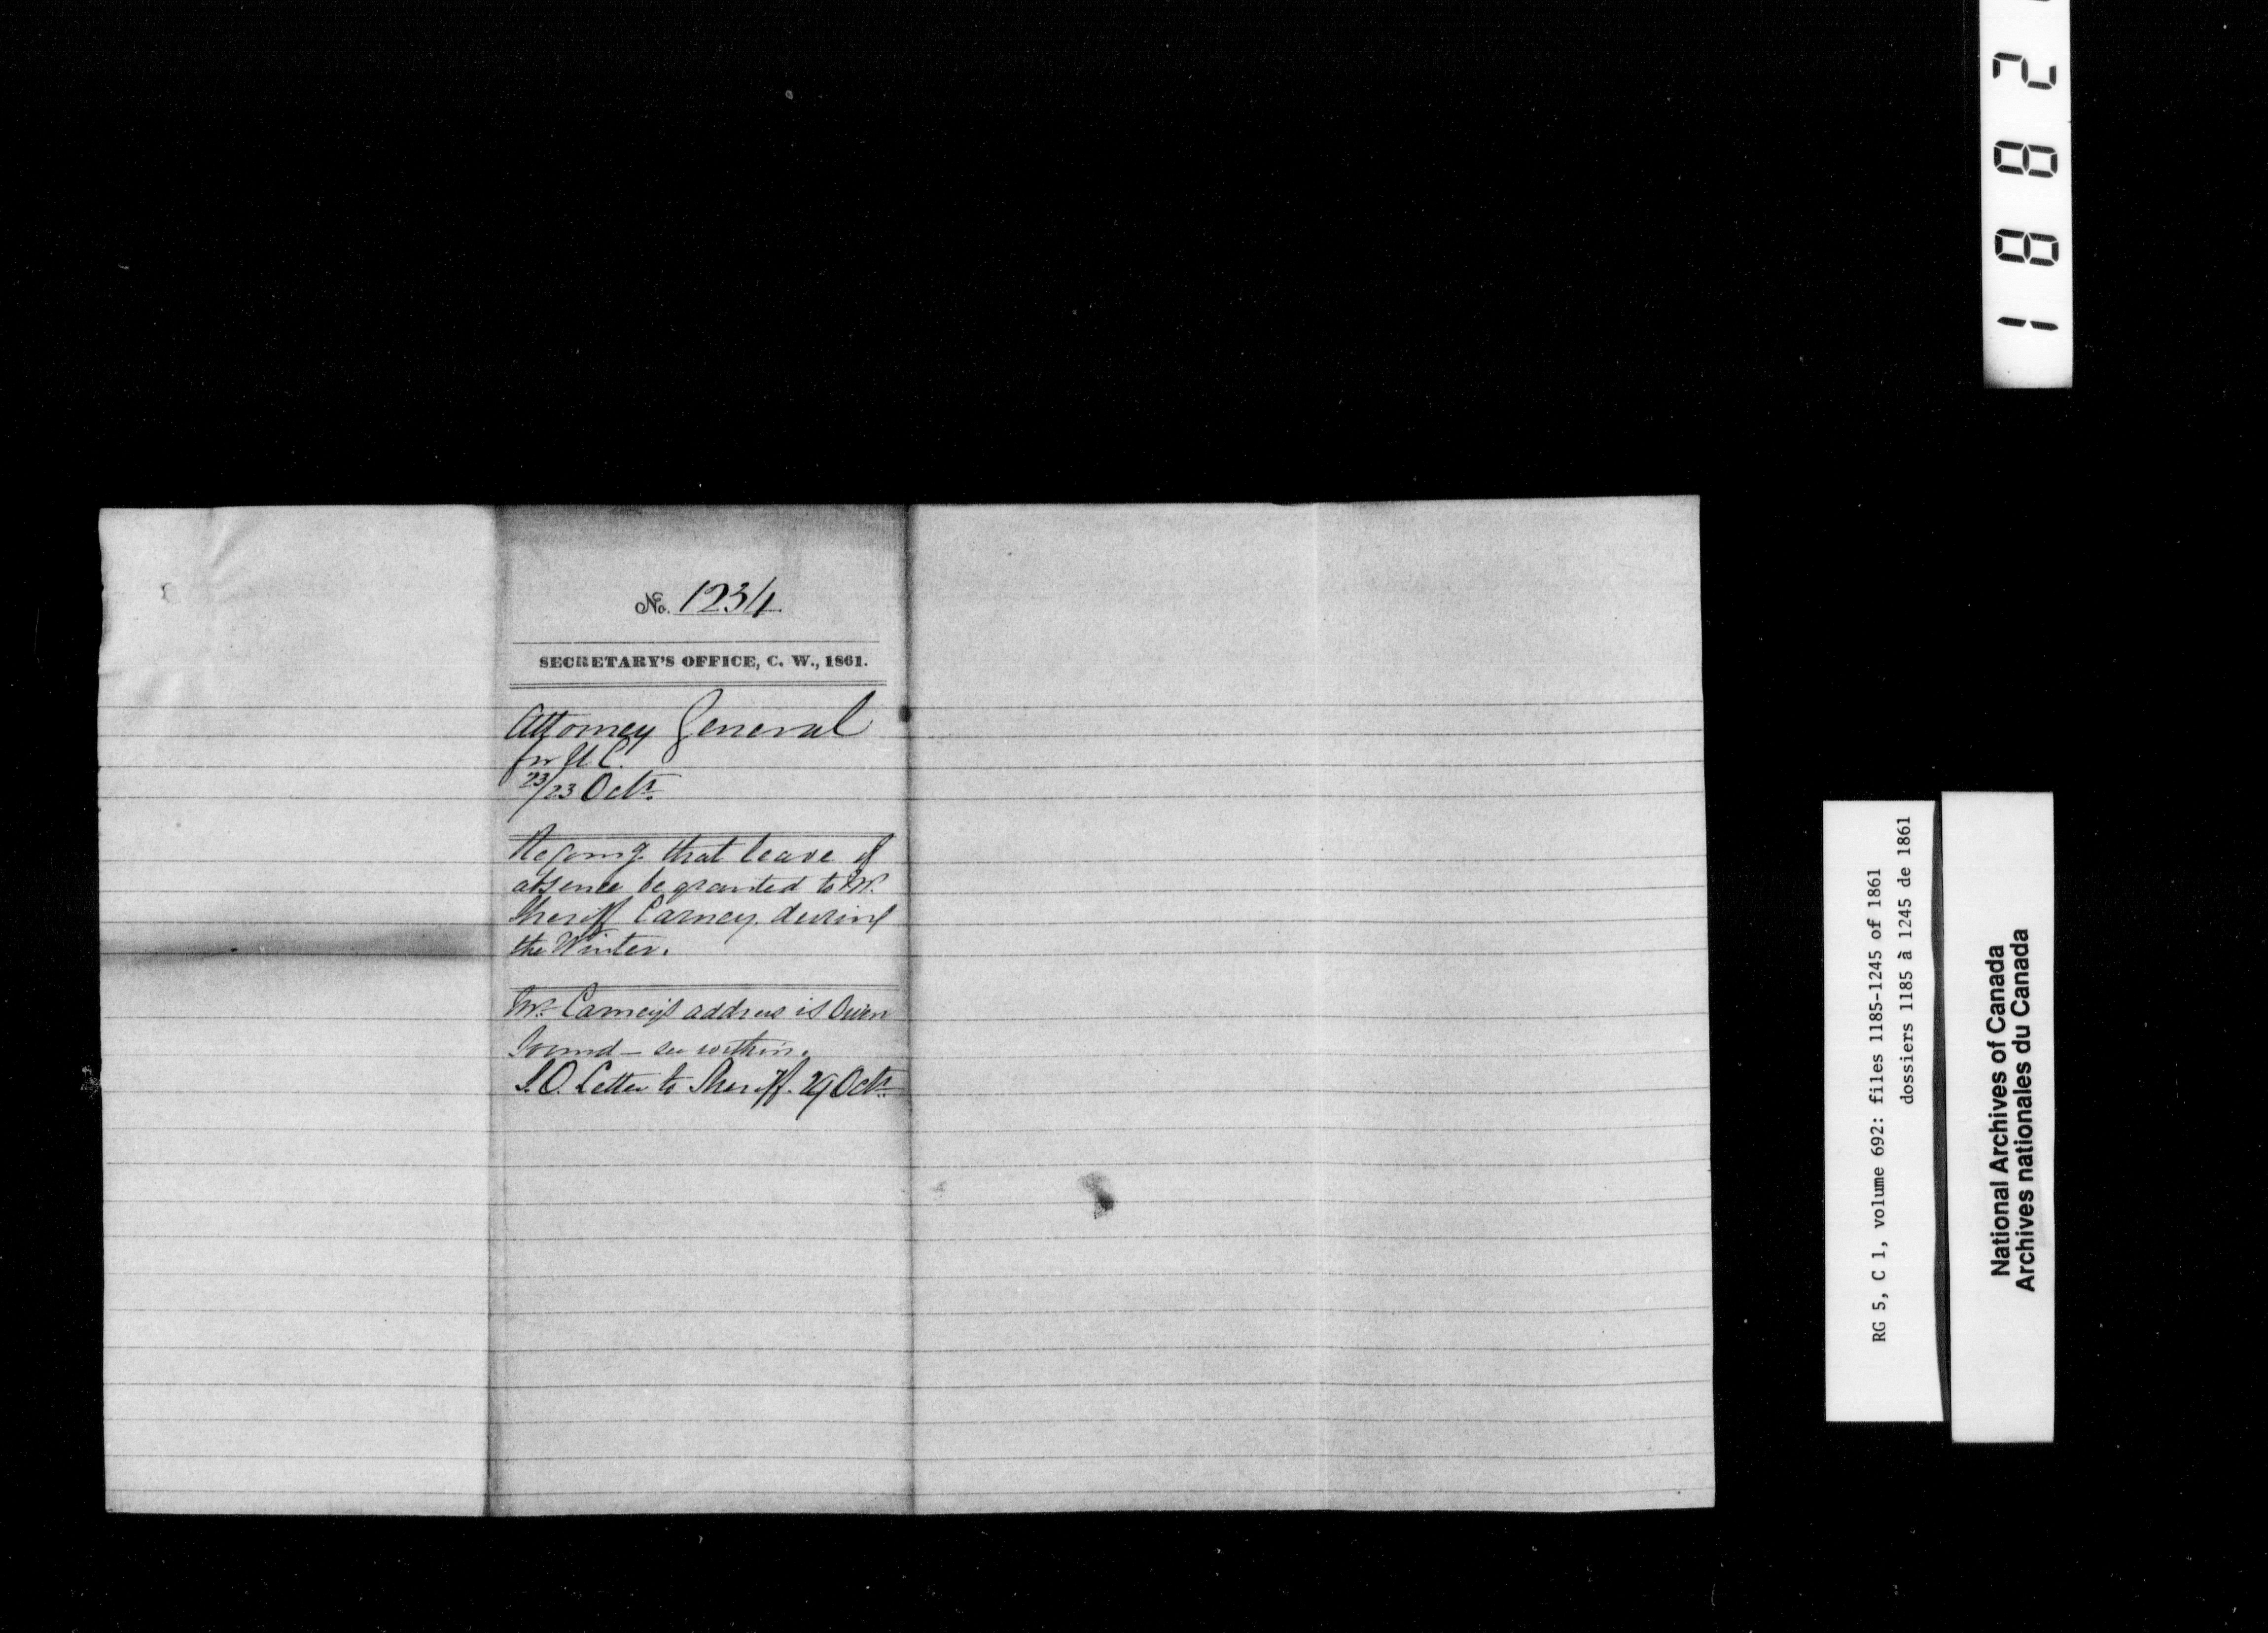 No. 1234
SECRETARY'S OFFICE, C. W., 1861.
Attorney General
for U.C.
23/23 Octr.
that leave of
absence be granted to Mr.
Sheriff Carney during
the Winter.
Mr. Carney's address is Owen
Sound – see within.
S.O. Letter to Sheriff. 29 Octr.
RG 5, C 1, volume 692: files 1185-1245 of 1861
dossiers 1185 à 1245 de 1861
National Archives of Canada
Archives nationales du Canada
1 8 8 2